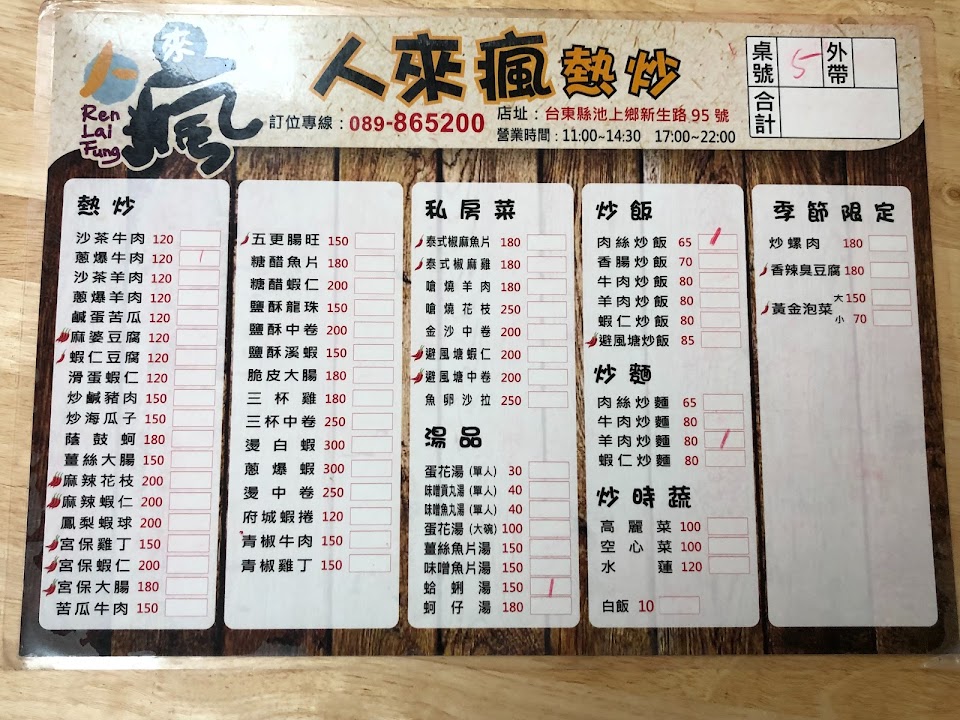 來
瘋
Ren
Lai
Fung
人來瘋熱炒
訂位專線：089-865200
店址：台東縣池上鄉新生路95號
營業時間：11:00~14:30 17:00~22:00
桌號 5 外帶
合計
熱炒
沙茶牛肉 120
蔥爆牛肉 120 1
沙茶羊肉 120
蔥爆羊肉 120
鹹蛋苦瓜 120
麻婆豆腐 120
蝦仁豆腐 120
滑蛋蝦仁 120
炒鹹豬肉 150
炒海瓜子 150
蔭鼓蚵 180
薑絲大腸 150
麻辣花枝 200
麻辣蝦仁 200
鳳梨蝦球 200
宮保雞丁 150
宮保蝦仁 200
宮保大腸 180
苦瓜牛肉 150
五更腸旺 150
糖醋魚片 180
糖醋蝦仁 200
鹽酥龍珠 150
鹽酥中卷 200
鹽酥溪蝦 150
脆皮大腸 180
三杯雞 180
三杯中卷 250
燙白蝦 300
蔥爆蝦 300
燙中卷 250
府城蝦捲 120
青椒牛肉 150
青椒雞丁 150
私房菜
泰式椒麻魚片 180
泰式椒麻雞 180
嗆燒羊肉 180
嗆燒花枝 250
金沙中卷 200
避風塘蝦仁 200
避風塘中卷 200
魚卵沙拉 250
湯品
蛋花湯(單人) 30
味噌貢丸湯(單人) 40
味噌魚丸湯(單人) 40
蛋花湯(大碗) 100
薑絲魚片湯 150
味噌魚片湯 150
蛤蜊湯 150 1
蚵仔湯 180
炒飯
肉絲炒飯 65 1
香腸炒飯 70
牛肉炒飯 80
羊肉炒飯 80
蝦仁炒飯 80
避風塘炒飯 85
炒麵
肉絲炒麵 65
牛肉炒麵 80
羊肉炒麵 80 1
蝦仁炒麵 80
炒時蔬
高麗菜 100
空心菜 100
水蓮 120
白飯 10
季節限定
炒螺肉 180
香辣臭豆腐 180
黃金泡菜 大 150
小 70